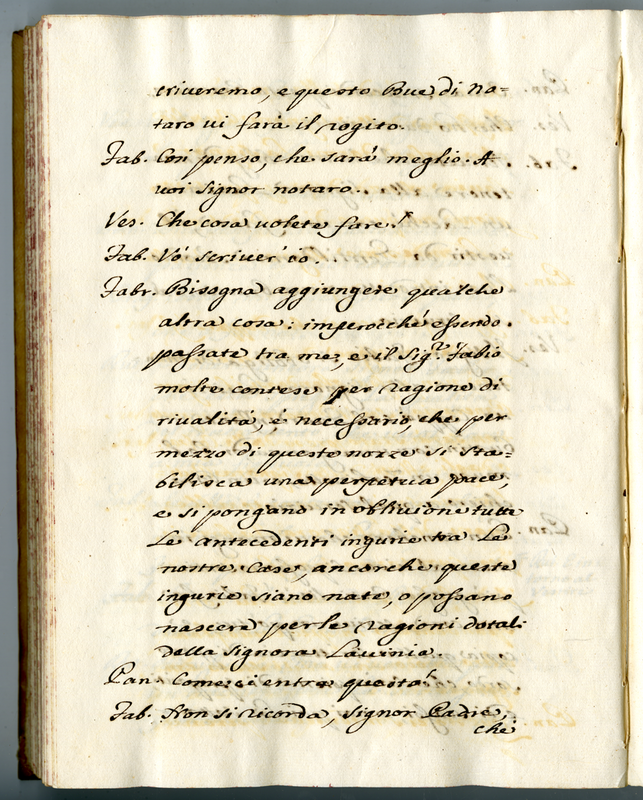 triveremo, e questo Bue di No=
taro vi farà il rogito.
Fab. Così penso, che sarà meglio. A
voi Signor notaro.
Ves. Che cosa volete fare?
Fab. Vo' scriver' io.
Fabr. Bisogna aggiungere qualche
altra cosa: imperoiché essendo
passate tra me, e il Sig.r Fabio
molte contese per ragione di
rivalità, é necessario, che per
mezzo di queste nozze si sta=
bilisca una perpetua pace,
e si pongano in oblivione tutte
Le antecedenti ingiurie tra Le
nostre Case, ancorche queste
ingurie siano nate, o possano
nascere per le ragioni dotali
della Signora Lavinia.
Pan. Come ci entra questa?
Fab. Non si ricorda, Signor Padre,
che